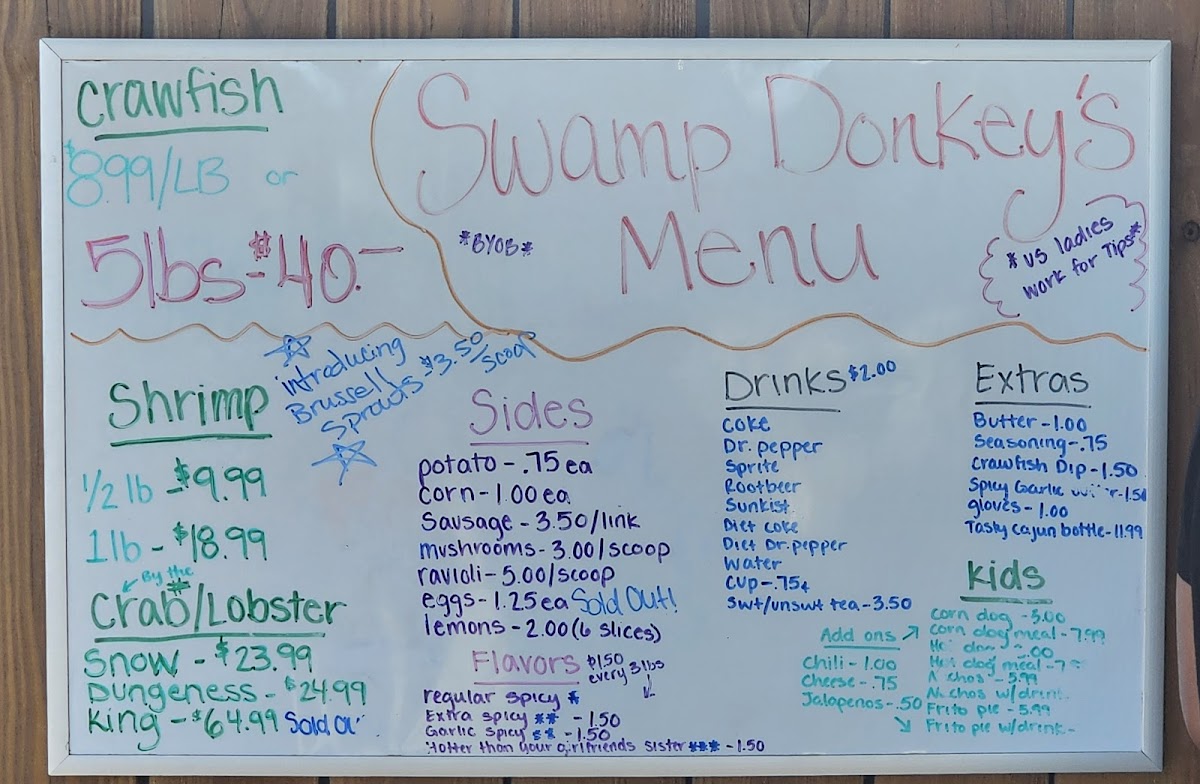 Swamp Donkey's
Menu
*BYOB*
*us ladies
work for Tips*
Crawfish
$8.99/LB or
5lbs-$40.—
introducing
Brussell
Sprouts-$3.50/scoop
Shrimp
1/2 lb -$9.99
1lb - $18.99
By the #
Crab/Lobster
Snow - $23.99
Dungeness - $24.99
King - $64.99 Sold
Sides
potato - .75 ea
corn - 1.00 ea.
Sausage - 3.50/link
mushrooms - 3.00/scoop
ravioli - 5.00/scoop
eggs - 1.25 ea Sold Out!
lemons - 2.00 (6 slices)
Flavors $1.50
every 3 lbs
regular spicy *
Extra spicy ** - 1.50
Garlic spicy ** - 1.50
Hotter than your girlfriends sister *** - 1.50
Drinks $2.00
Coke
Dr. pepper
Sprite
Rootbeer
Sunkist
Diet Coke
Diet Dr. pepper
Water
Cup - .75¢
Swt/unswt tea - 3.50
Extras
Butter - 1.00
Seasoning - .75
Crawfish Dip - 1.50
Spicy Garlic
gloves - 1.00
Tasky cajun bottle - 11.99
Kids
corn dog - 5.00
Corn dog meal - 7.99
Hot dog meal
5.99
w/drink
Frito pie - 5.99
Frito pie w/drink -
Add ons
Chili - 1.00
Cheese - .75
Jalapenos - .50